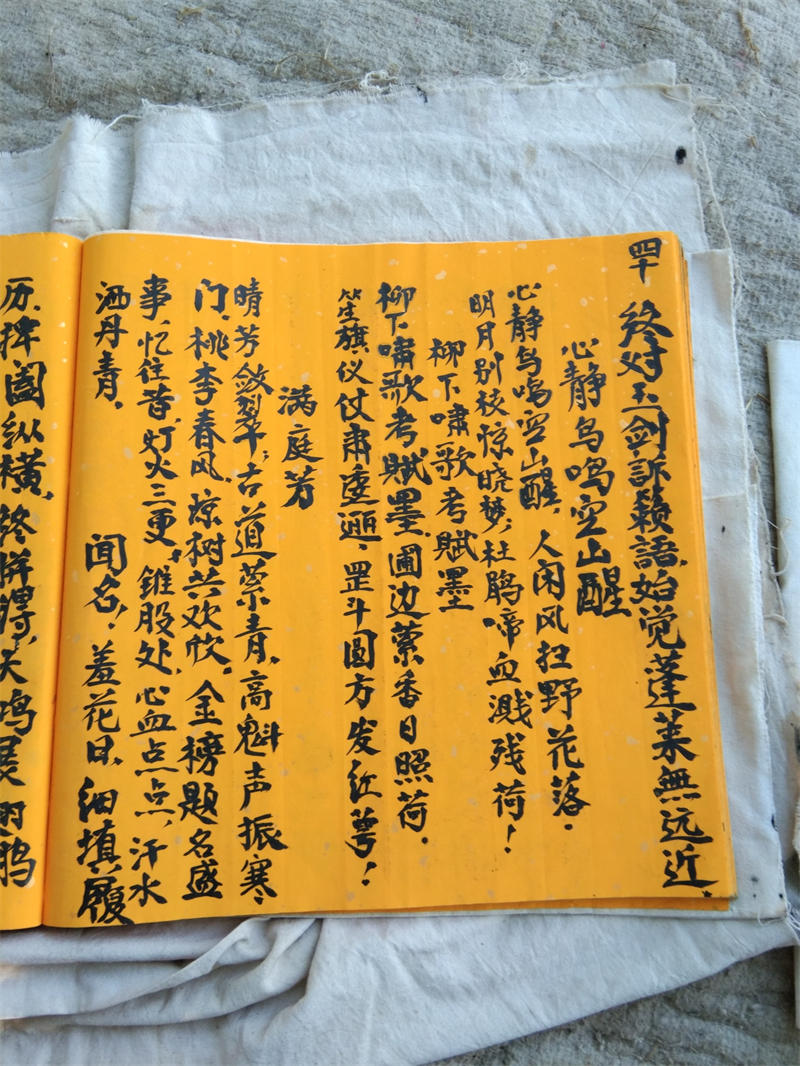 四十
终对玉剑訴籁語，始觉蓬莱無远近．
心静鸟鸣空山醒
心静鸟鸣空山醒，人闲风扫野花落．
明月别枝惊晓梦；杜鹃啼血溅残荷！
柳下啸歌考赋墨
柳下啸歌考赋墨，圃边萦香日照荷．
笙旗仪仗肃逶迤，罡斗圆方发红萼！
满庭芳
晴芳敛翠，古道萦青，高魁声振寒
门，桃李春风，琼树共欢忺．金榜题名盛
事，忆往昔，灯火三更，锥股处，心血点点，汗水
洒丹青，
闻名！羞花日，细填履
历，捭阖纵横，终拼得，大鸣展